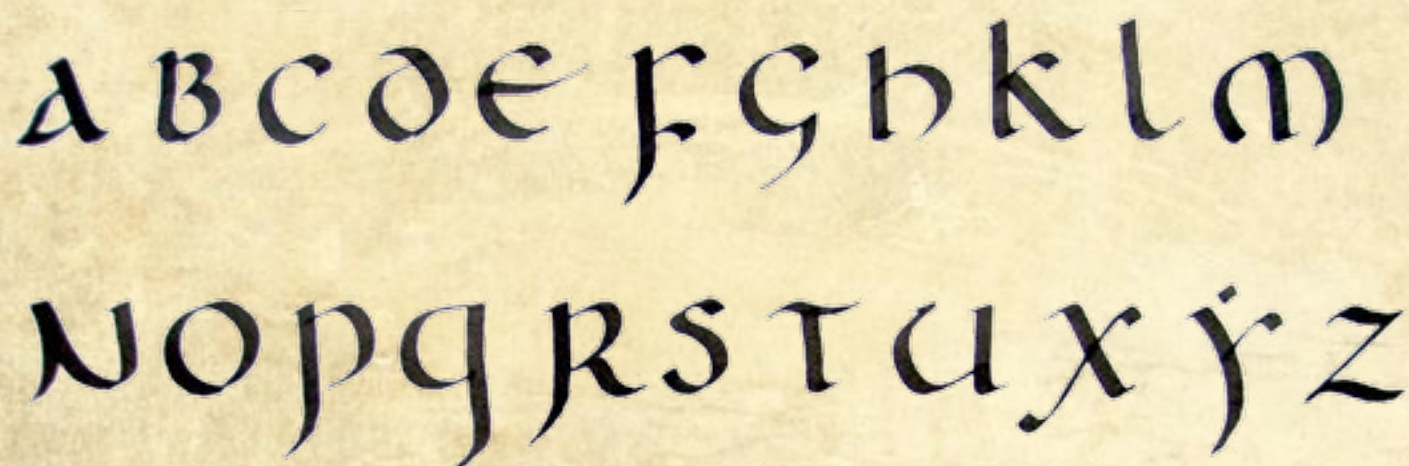 A B C D E F G h k l m
N O P q R S T U X Ẏ Z